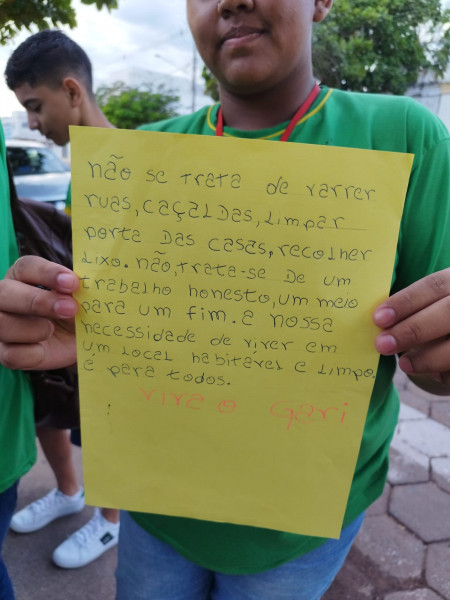 não se trata de varrer
ruas, caçaldas, limpar
porta das casas, recolher
lixo. não, trata-se de um
trabalho honesto, um meio
para um fim. a nossa
necessidade de viver em
um local habitavel e limpo,
é para todos.
viva o Gari